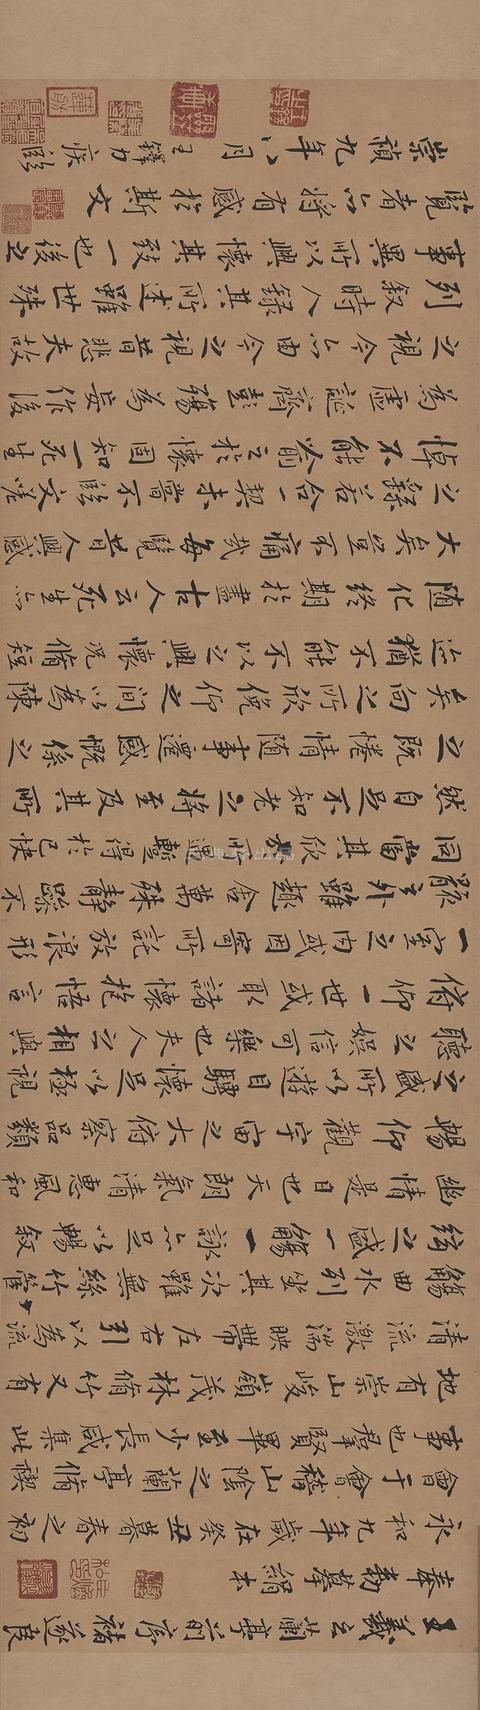 王羲之蘭亭前序褚遂良
奉勅摹絹本
永和九年歲在癸丑暮春之初
會于會稽山陰之蘭亭脩禊
事也群賢畢至少長咸集此
地有崇山峻嶺茂林脩竹又有
清流激湍映帶左右引以為流
觴曲水列坐其次雖無絲竹管
絃之盛一觴一詠亦足以暢敘
幽情是日也天朗氣清惠風和
暢仰觀宇宙之大俯察品類
之盛所以遊目騁懷足以極視
聽之娛信可樂也夫人之相與
俯仰一世或取諸懷抱悟言
一室之內或因寄所託放浪形
骸之外雖趣舍萬殊靜躁不
同當其欣於所遇蹔得於己快
然自足不知老之將至及其所
之既惓情隨事遷感慨係之
矣向之所欣俛仰之間以為陳
迹猶不能不以之興懷況脩短
隨化終期於盡古人云死生亦
大矣豈不痛哉每覽昔人興感
之繇若合一契未嘗不臨文嗟
悼不能喻之於懷固知一死生
為虛誕齊彭殤為妄作後
之視今亦由今之視昔悲夫故
列敘時人錄其所述雖世殊
事異所以興懷其致一也後之
覽者亦將有感於斯文
崇禎九年八月王鐸力疾臨